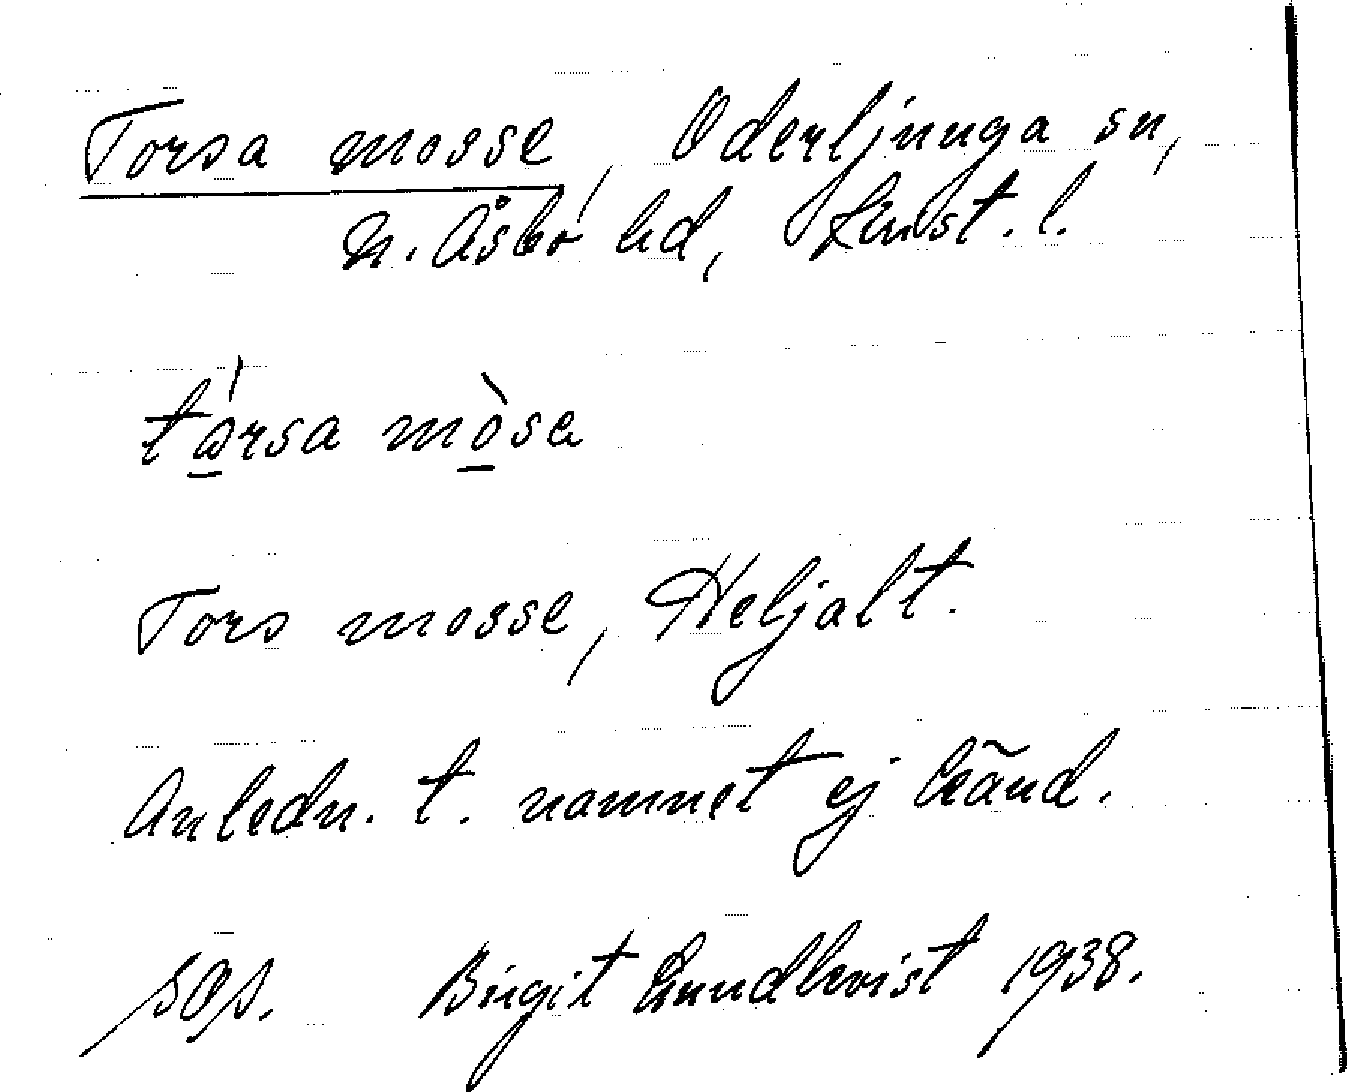 Torsa mosse, Oderljunga sn,
N. Åsbo hd, Krist. l.
tårsa mòse
Tors mosse, Heljalt.
Anledn. t. namnet ej känd.
Birgit Lundkvist 1938.